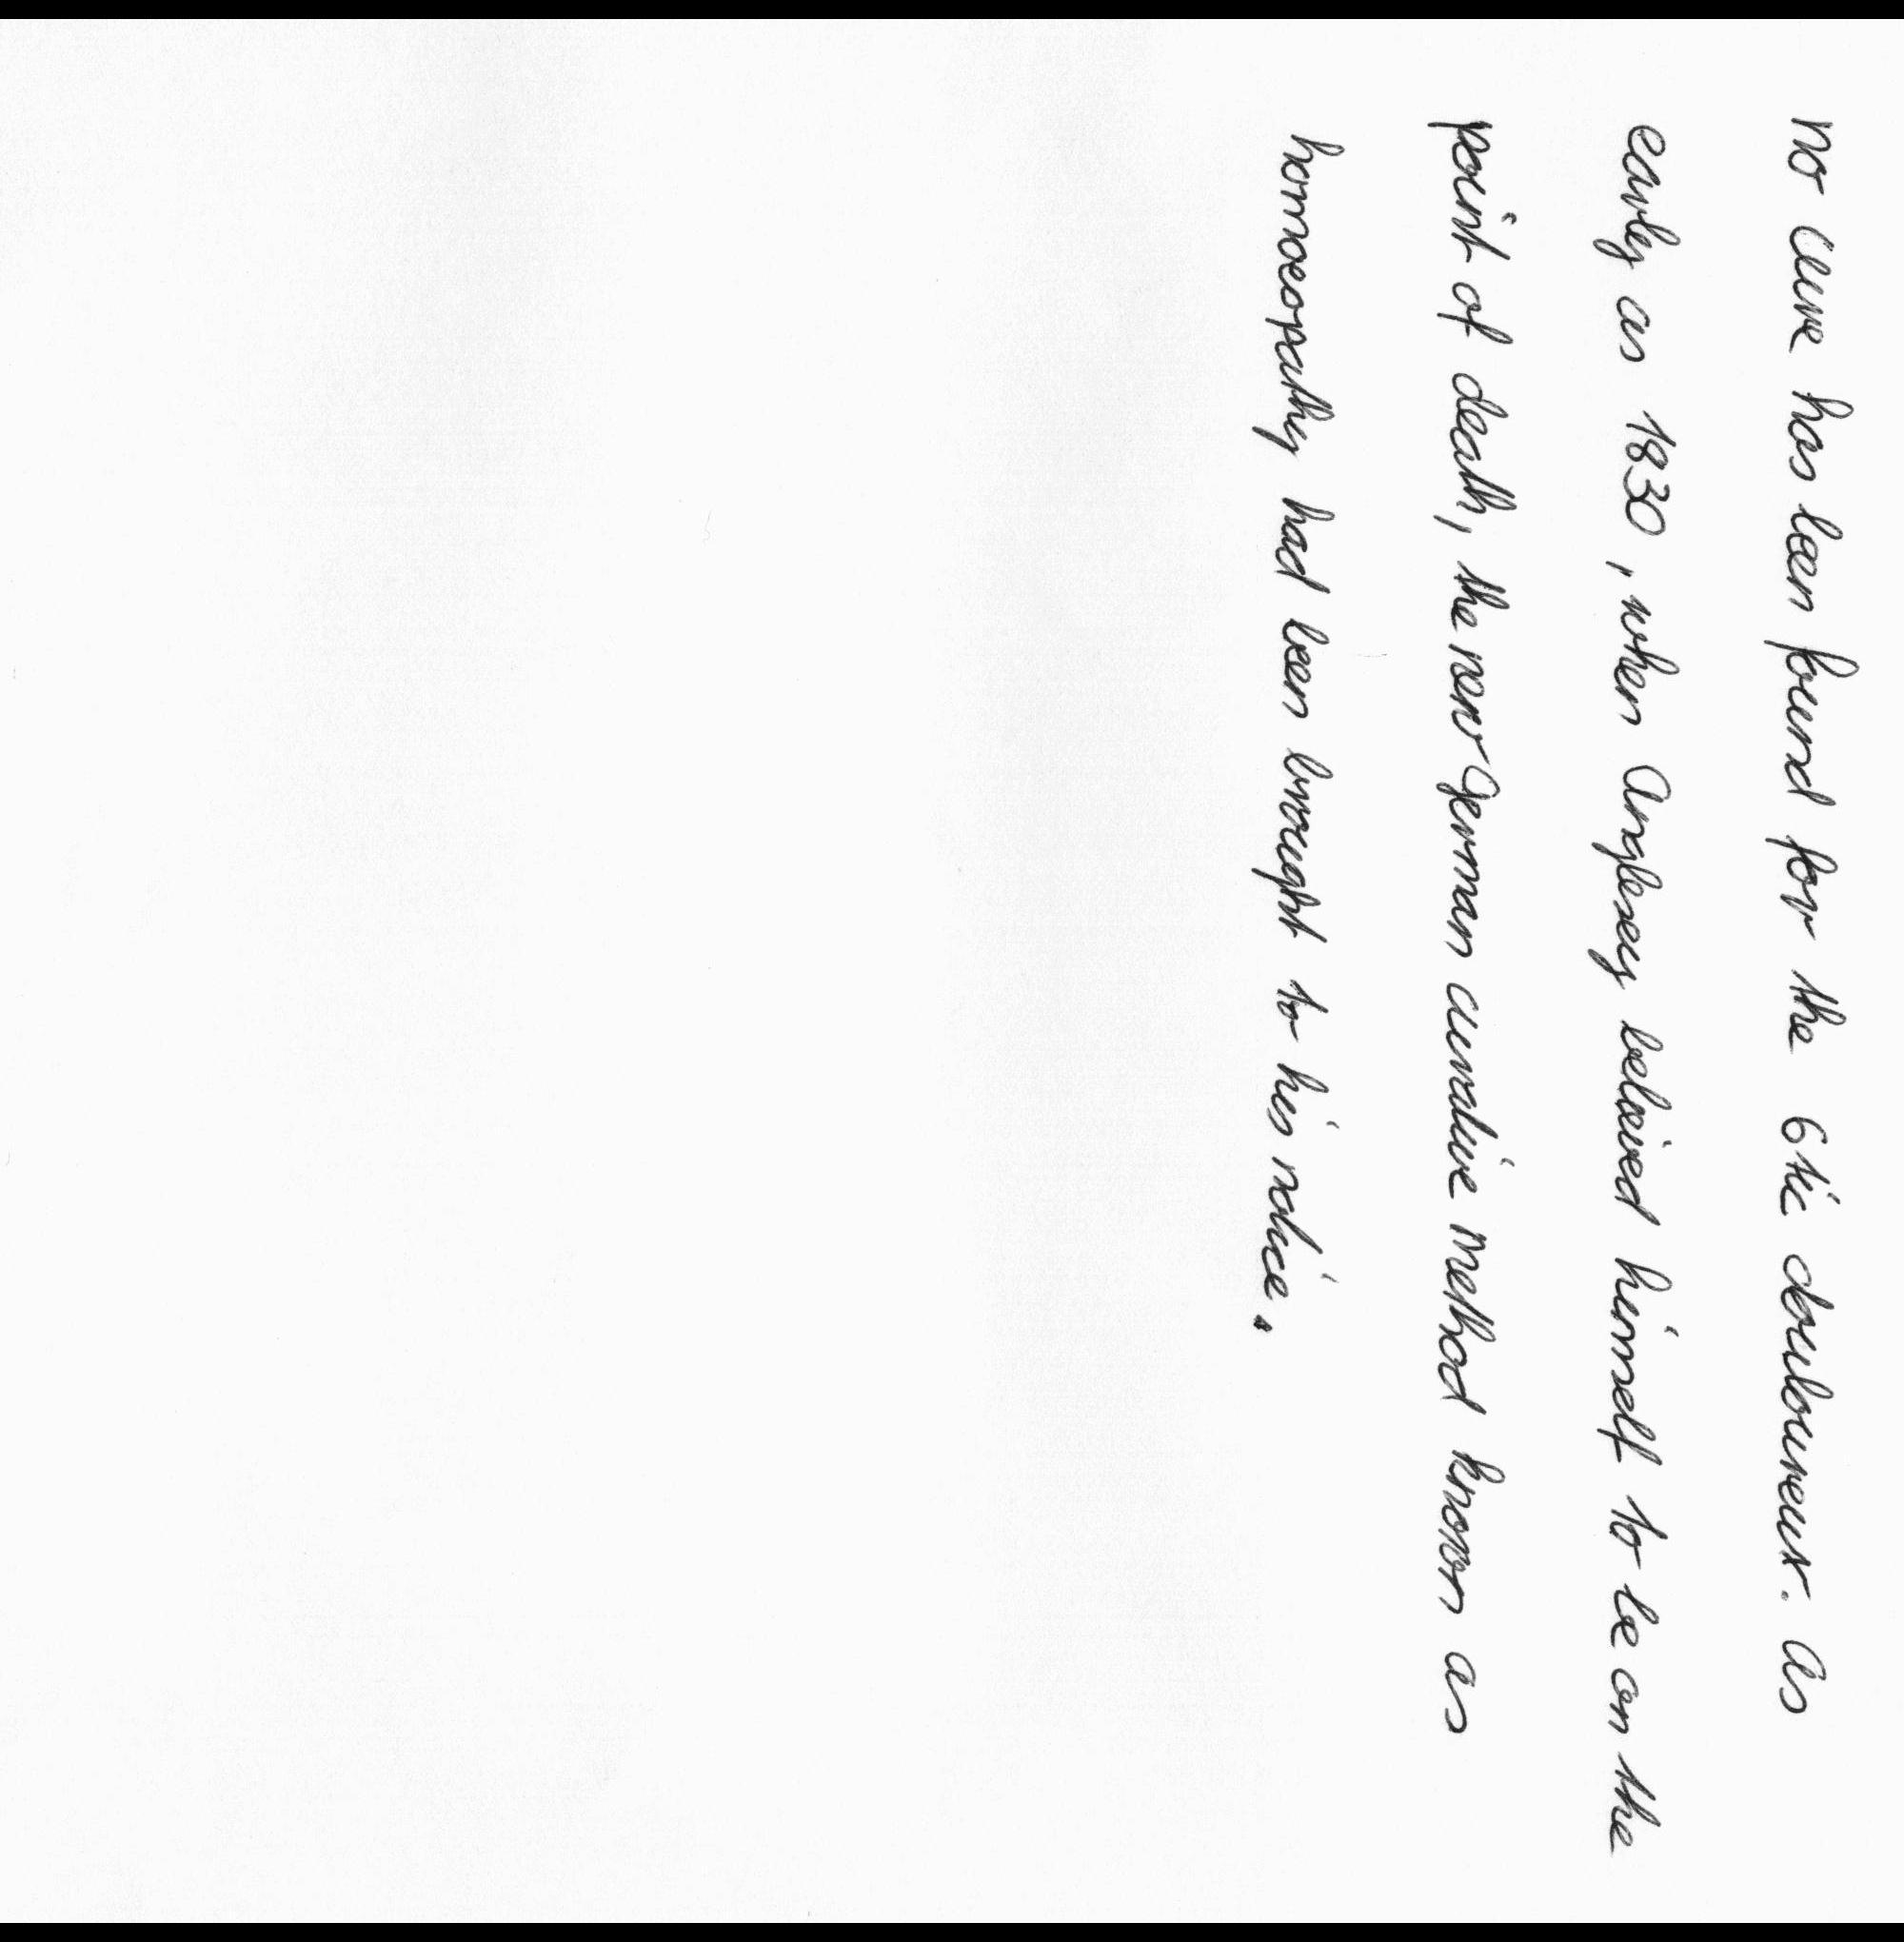 no cure has been found for the 6tic douloureux. As
early as 1830, when Anglesey beleived himself to be on the
point of death, the new German curative method known as
homoeopathy had been brought to his notice.